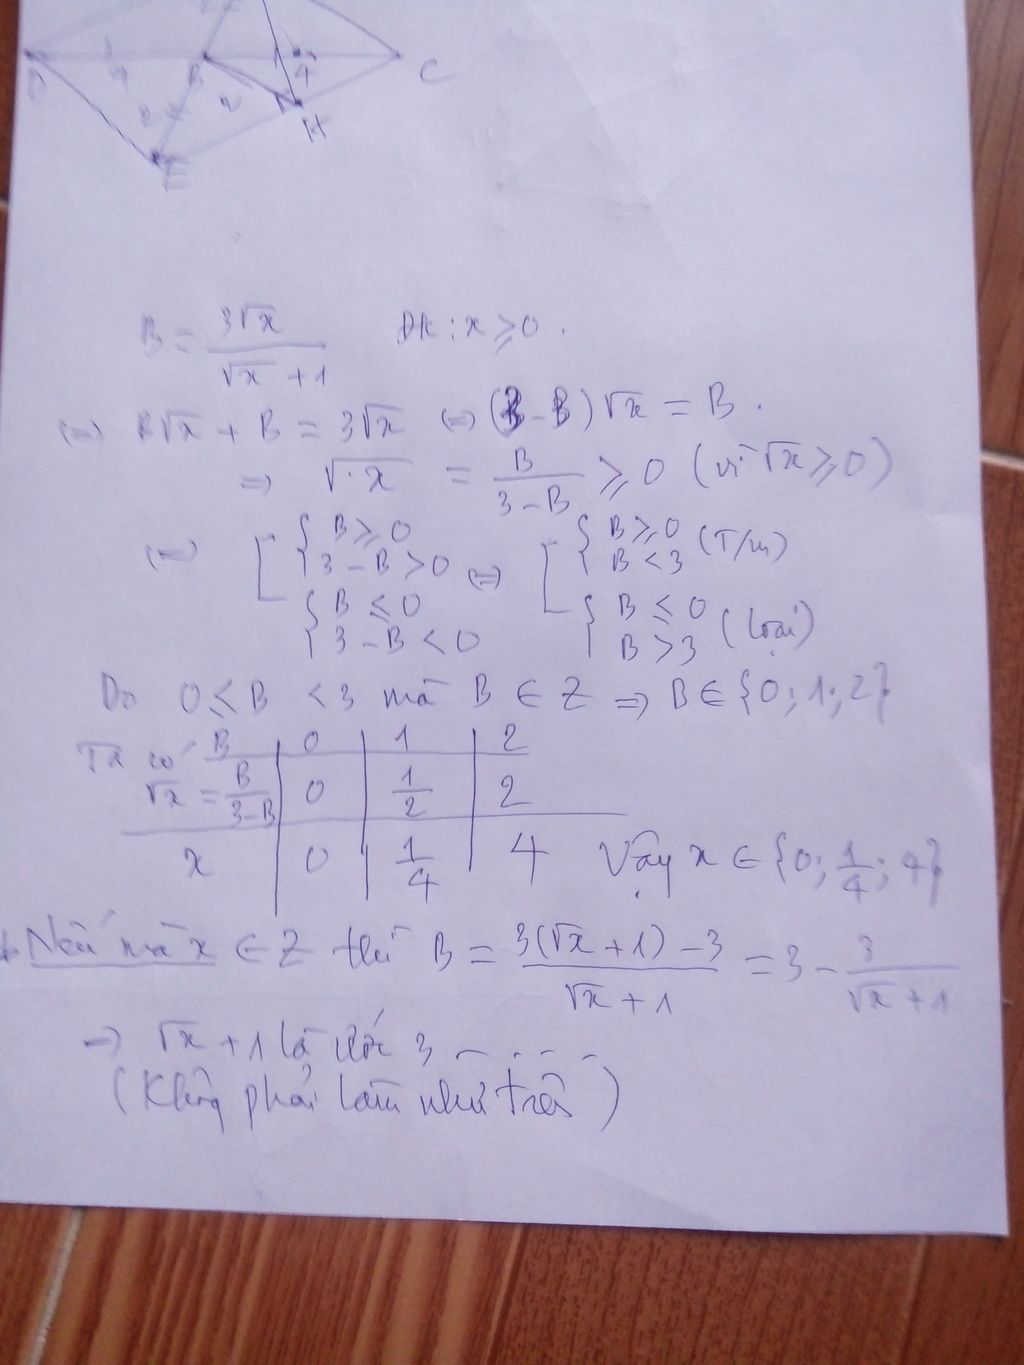 B
C
H
E
B = 3√x / (√x + 1) ĐK: x ≥ 0.
(=) B√x + B = 3√x (=) (3 - B)√x = B.
=> √x = B / (3 - B) ≥ 0 (vì √x ≥ 0)
(=) [ { B ≥ 0 ; 3 - B > 0 (=) [ { B ≥ 0 ; B < 3 (T/m)
{ B ≤ 0 ; 3 - B < 0 { B ≤ 0 ; B > 3 (loại)
Do 0 ≤ B < 3 mà B ∈ Z => B ∈ {0; 1; 2}
Ta có B | 0 | 1 | 2
√x = B / (3 - B) | 0 | 1/2 | 2
x | 0 | 1/4 | 4 Vậy x ∈ {0; 1/4; 4}
Nếu mà x ∈ Z thì B = (3(√x + 1) - 3) / (√x + 1) = 3 - 3 / (√x + 1)
=> √x + 1 là ước 3 - . - -
(Không phải làm như trên)